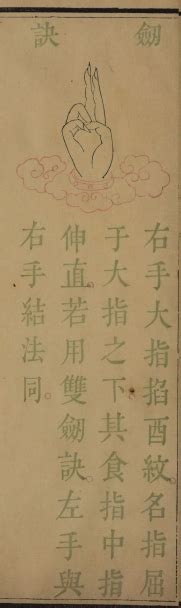 劔訣
右手大指掐酉紋名指屈
于大指之下其食指中指
伸直。若用雙劔訣。左手與
右手結法同。